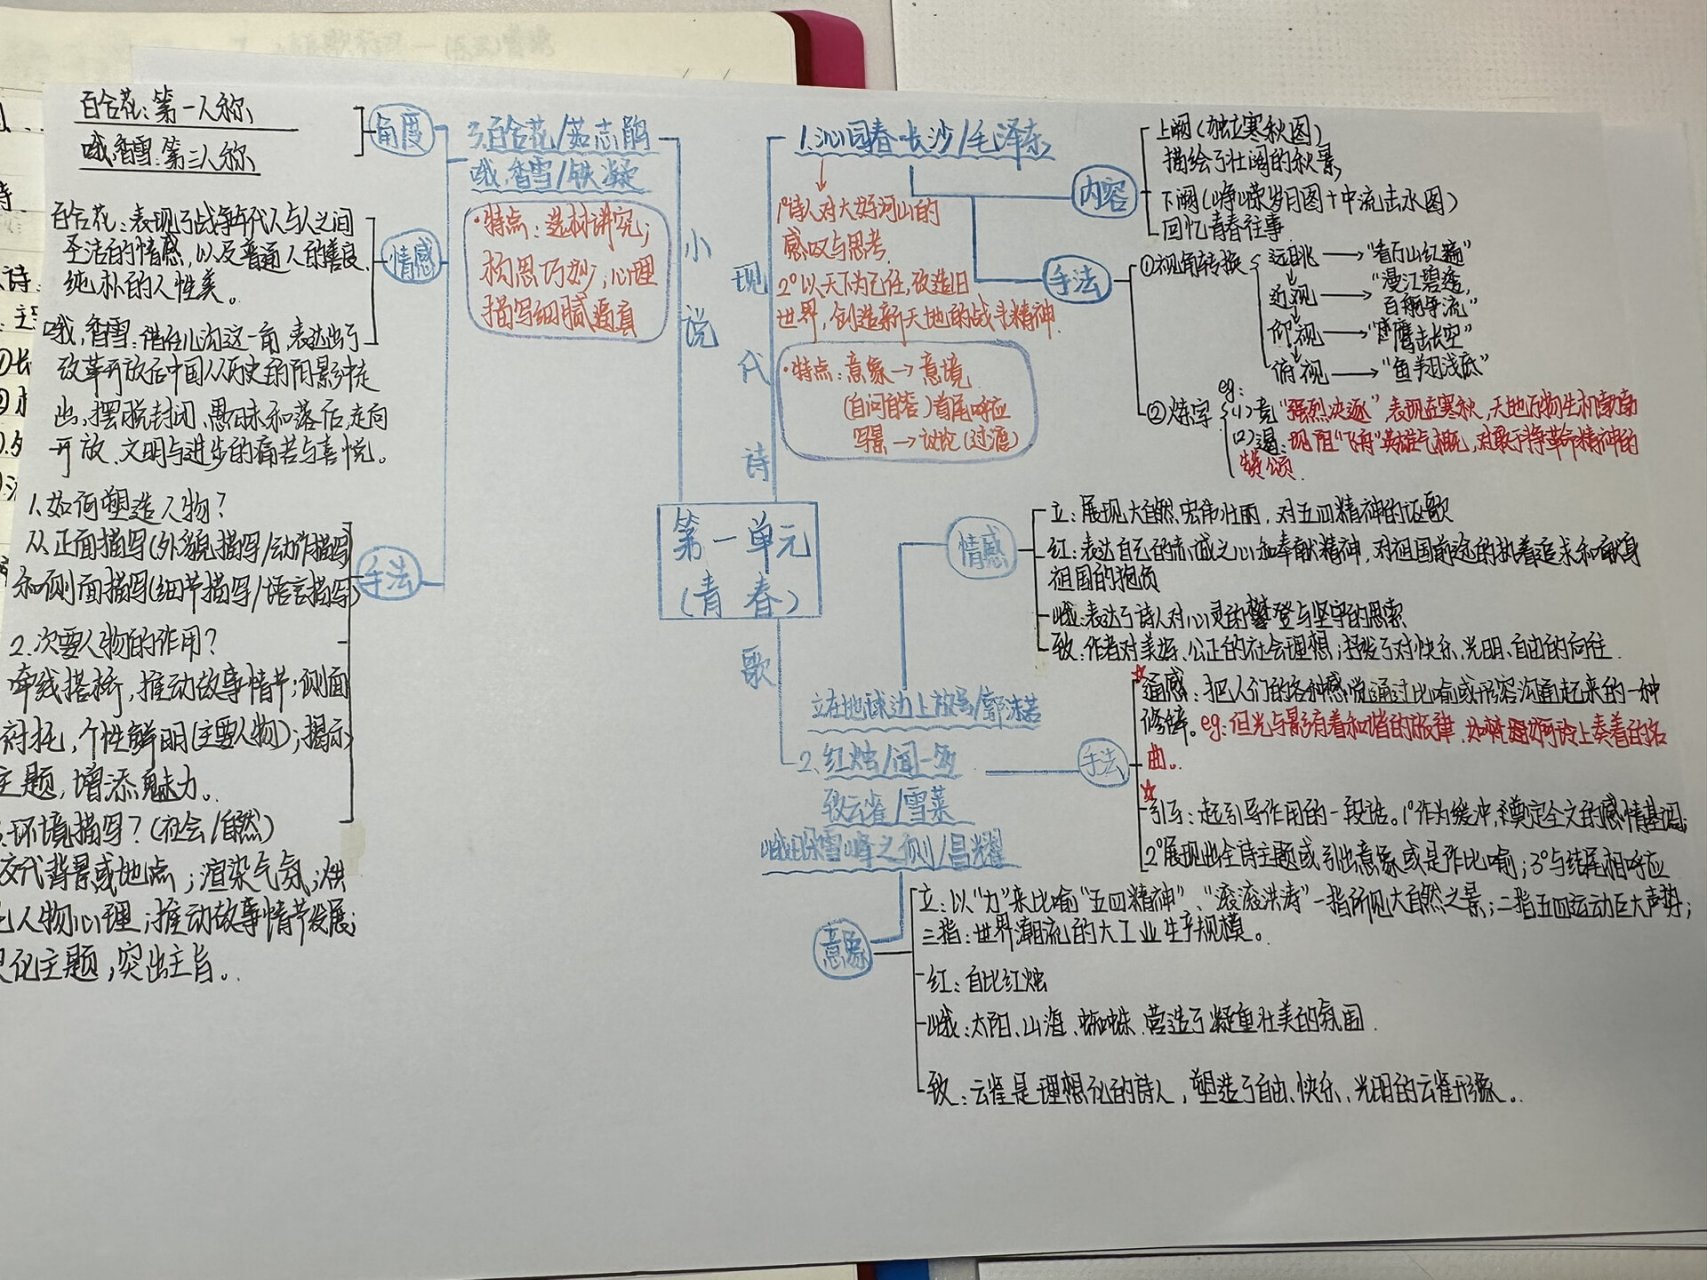 第一单元
（青春）
小说
现代诗歌
3.百合花/茹志鹃
哦，香雪/铁凝
·特点：选材讲究；
构思巧妙，心理
描写细腻逼真
角度
百合花：第一人称
哦，香雪：第三人称
情感
百合花：表现了战争年代人与人之间
圣洁的情感，以及普通人的善良、
纯朴的人性美。
哦，香雪：借台儿沟这一角，表达出了
改革开放后中国从历史的阴影中走
出，摆脱封闭、愚昧和落后，走向
开放、文明与进步的痛苦与喜悦。
手法
1.如何塑造人物？
从正面描写（外貌描写/动作描写）
和侧面描写（细节描写/语言描写）
2.次要人物的作用？
牵线搭桥，推动故事情节；侧面
衬托，个性鲜明（主要人物）；揭示
主题，增添魅力。
环境描写？（社会/自然）
交代背景或地点；渲染气氛；烘
人物心理；推动故事情节发展；
化主题，突出主旨。
1.沁园春·长沙/毛泽东
1°诗人对大好河山的
感叹与思考
2°以天下为己任，改造旧
世界，创造新天地的战斗精神
·特点：意象→意境
（自问自答）首尾呼应
写景→议论（过渡）
内容
上阕（独立寒秋图）
描绘了壮阔的秋景
下阕（峥嵘岁月图+中流击水图）
回忆青春往事
手法
①视角转换
远眺→“看万山红遍”
近视→“漫江碧透，
百舸争流”
仰视→“鹰击长空”
俯视→“鱼翔浅底”
②炼字
eg：
(1)竞“强烈决逐”表现在寒秋，天地万物生机勃勃
(2)遏：现阻“飞舟”英雄气概，对敢于将革命精神的
赞颂
立在地球边上放号/郭沫若
2.红烛/闻一多
致云雀/雪莱
峨日朵雪峰之侧/昌耀
情感
立：展现大自然宏伟壮丽，对五四精神的讴歌
红：表达自己的赤诚之心和奉献精神，对祖国前途的执着追求和献身
祖国的抱负
峨：表达了诗人对心灵的攀登与坚守的思索
致：作者对美好、公正的社会理想；抒发了对快乐、光明、自由的向往
手法
☆通感：把人们的各种感觉通过比喻或形容沟通起来的一种
修辞。eg：但光与影有着和谐的旋律，如梵婀玲上奏着的名
曲。
☆引子：起引导作用的一段话。1°作为缓冲，奠定全文的感情基调；
2°展现出全诗主题或引出意象或是作比喻；3°与结尾相呼应
意象
立：以“力”来比喻“五四精神”、“滚滚洪涛”一指所见大自然之景；二指五四运动巨大声势；
三指：世界潮流的大工业生产规模。
红：自比红烛
峨：太阳、山海、蜘蛛，营造了凝重壮美的氛围
致：云雀是理想化的诗人，塑造了自由、快乐、光明的云雀形象。